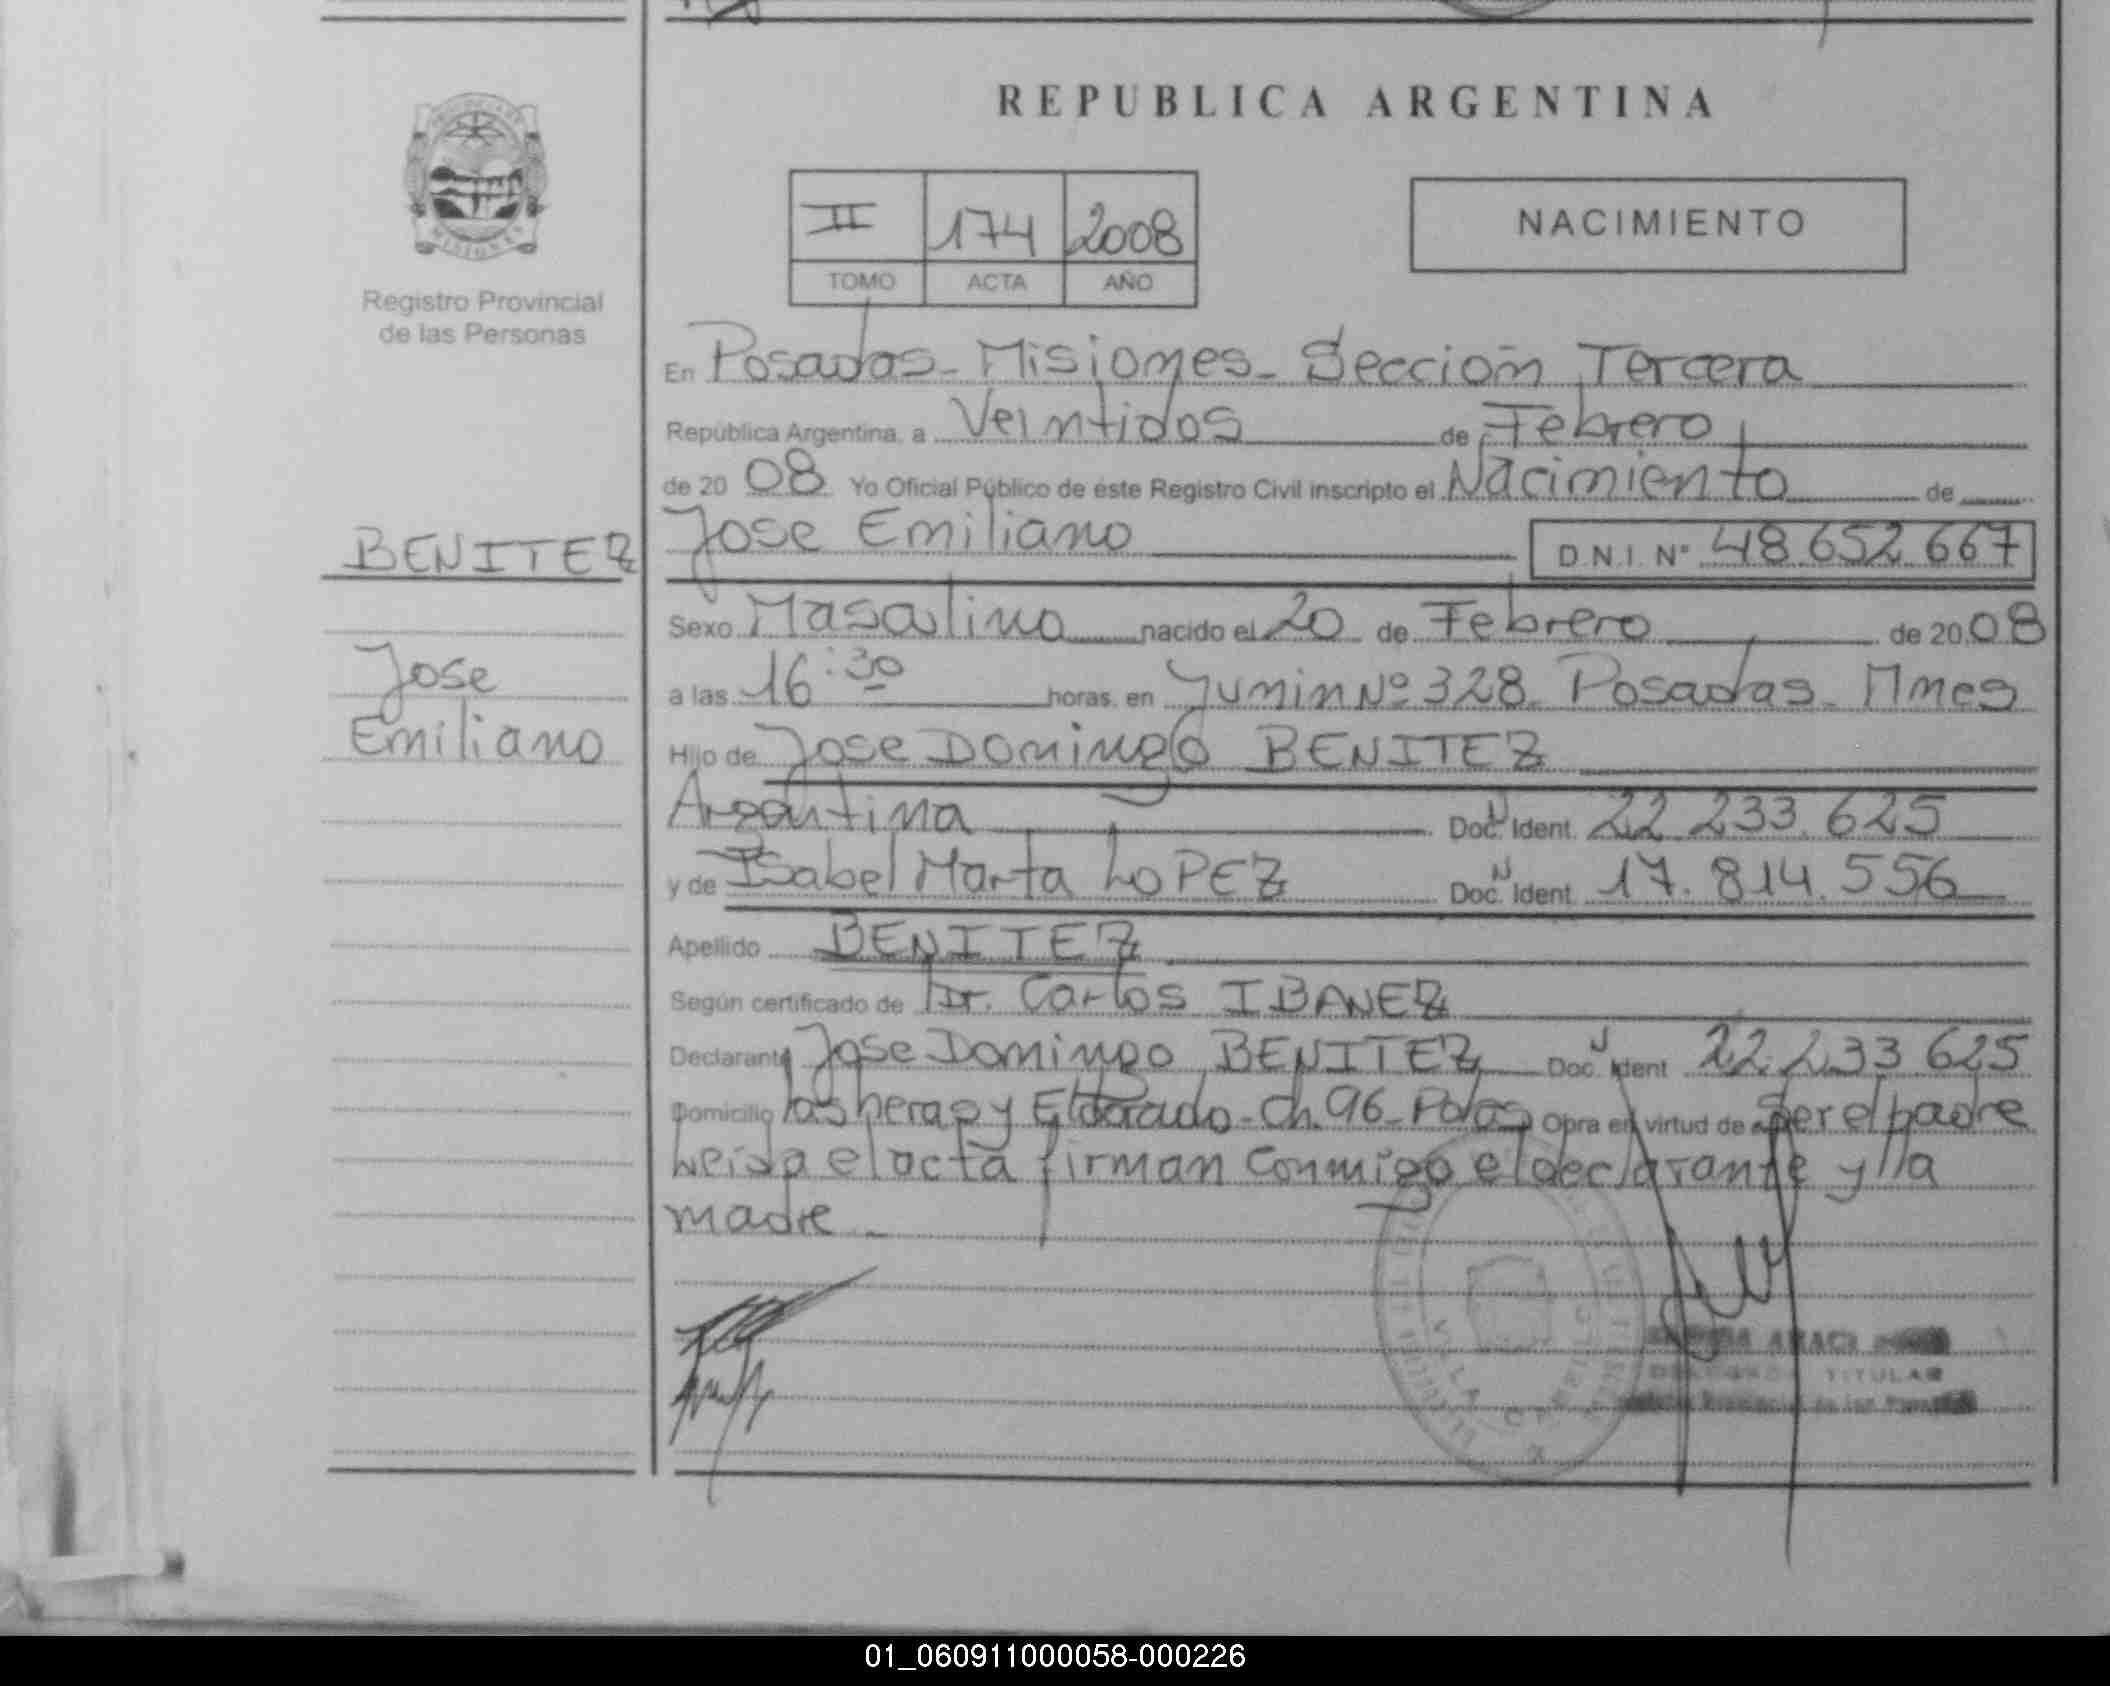 REPUBLICA ARGENTINA
II 174 2008
TOMO ACTA AÑO
NACIMIENTO
Registro Provincial
de las Personas
En Posadas - Misiones - Sección Tercera
República Argentina, a Veintidos de Febrero
de 20 08 Yo Oficial Público de éste Registro Civil inscripto el Nacimiento de
BENITEZ
Jose Emiliano D.N.I. Nº 48.652.667
Sexo Masculino nacido el 20 de Febrero de 20 08
Jose
Emiliano
a las 16:30 horas, en Junin Nº 328 Posadas - Mnes
Hijo de Jose Domingo BENITEZ
Argentina Doc. Ident. 22 233.625
y de Isabel Marta LOPEZ Doc. Ident. 17.814.556
Apellido BENITEZ
Según certificado de Dr. Carlos IBANEZ
Declarante Jose Domingo BENITEZ Doc. Ident 22.233 625
Domicilio las heras y Eldorado - Ch. 96 - Pdas Obra en virtud de Ser el padre
Leida el acta firman conmigo el declarante y la
madre -
VILLA CABELLO
TITULAR
01_060911000058-000226